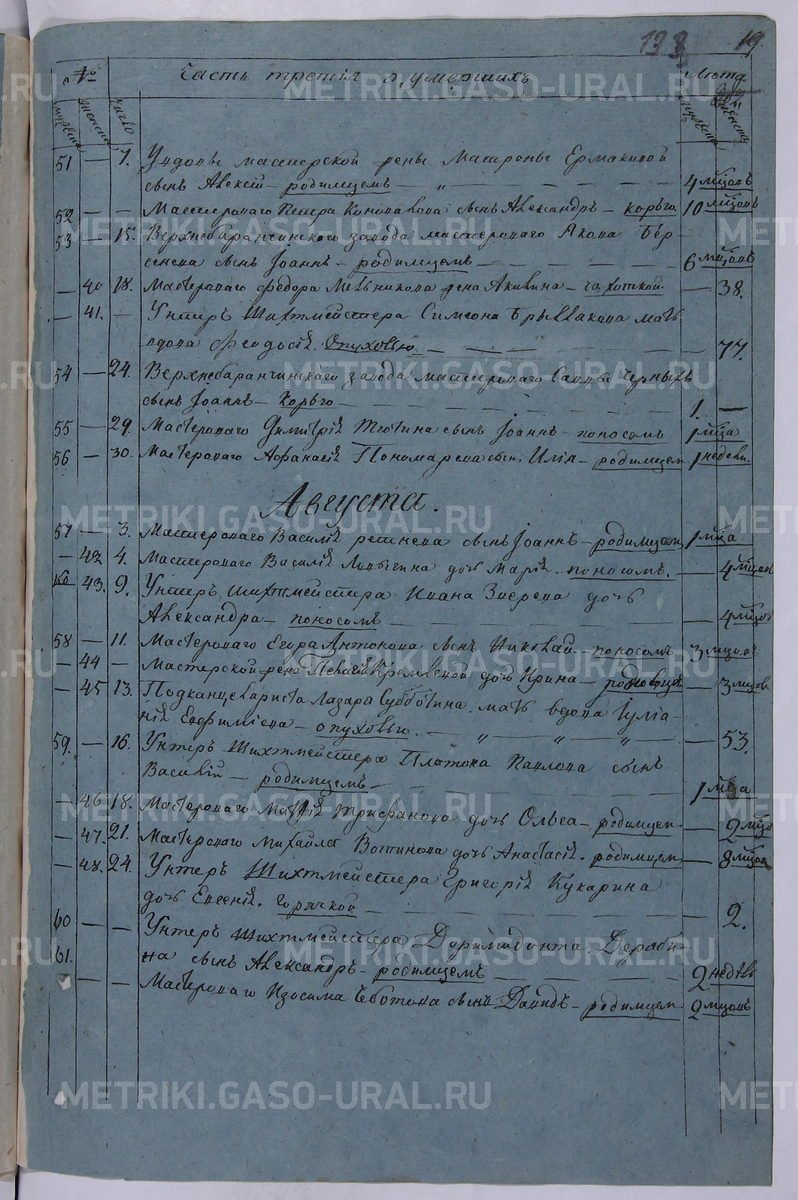 133 19.
№ Часть третія о умершихъ Лѣта
мужеска женска число мужеска женска
51 — 7. Умдовы мастерской жены Матроны Ермаковой
сынъ Алексѣй — родимцемъ — „ — 4 мѣсцовъ
52 — — Мастероваго Петра Коновалова сынъ Александръ — корью 10 мѣсцовъ
53 — 15. Верхнебаранчинскаго завода мастероваго Якова Бер-
сенева сынъ Іоаннъ — родимцемъ — 6 мѣсцовъ
— 40 18. Мастероваго Федора Мельникова жена Акилина — чахоткой — 38.
— 41. — Унтеръ Шихтмейстера Симеона мать
вдова Феодосія. Опухолью — 77.
54 — 24. Верхнебаранчинскаго завода мастероваго Саввы Черныхъ
сынъ Іоаннъ — Корью 1. —
55 — 29. Мастероваго Димитрія Тютина сынъ Іоаннъ — поносомъ 1 мѣца
56 — 30. Мастероваго Афанасія Пономарева сынъ Илія — родимцем 1 недели.
Августа.
57 — 3. Мастероваго Василія сынъ Іоаннъ — родимцем 1 мѣца
— 42 4. Мастероваго Василія дочь Марія — поносомъ. — 4 мѣсцовъ
— 43. 9. Унтеръ Шихтмейстера Ивана Зверева дочь
Александра — поносомъ — 4 мѣсцовъ
58 — 11. Мастероваго Егора Антонова сынъ Николай — поносомъ 3 мѣсцовъ
— 44 — Мастерской жены Пелагіи дочь Ирина — — 3 мѣсцов
— 45 13. Подканцеляриста Лазаря Субботина мать вдова Іулiа-
нія Евфиміева — опухолью. — „ — „ — „ — 53.
59. — 16. Унтеръ Шихтмейстера Платона Павлова сынъ
Василій — родимцемъ — 1 мѣца
— 46 18. Мастероваго Матѳія Трифанова дочь Ольга — родимцем — 2 мѣцо
— 47. 21. Мастероваго Михайла Вотинова дочь Анастасія. родимцем — 8 мѣсцов
— 48. 24. Унтеръ Шихтмейстера Григорія Кукарина
дочь Евгенія. Горячкой — 2.
60 — — Унтеръ Шихтмейстера Доримидонта Дераби-
61. на сынъ Александръ — родимцемъ — 2 недѣль
— — Мастероваго Изосима Еботова сынъ Давидъ — родимцем — 2 мѣсцовъ
METRIKI.GASO-URAL.RU